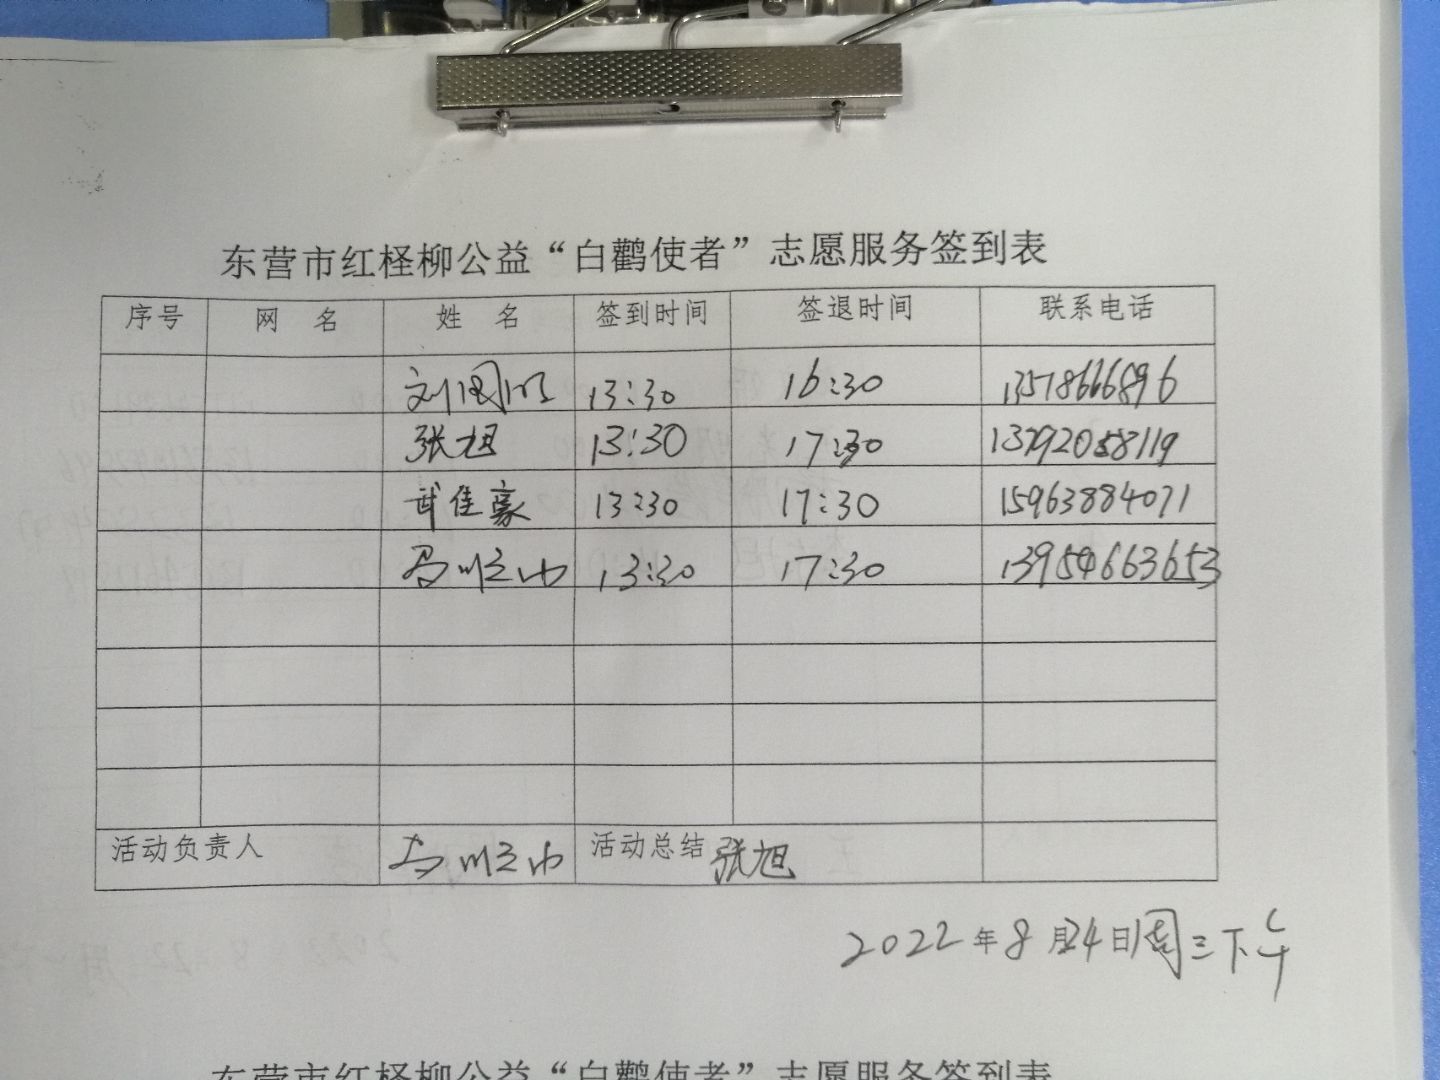 东营市红柽柳公益“白鹳使者”志愿服务签到表
序号 网 名 姓 名 签到时间 签退时间 联系电话
刘国明 13:30 16:30 13578666896
张旭 13:30 17:30 13792058119
武佳豪 13:30 17:30 15963884071
13:30 17:30 13954663653
活动负责人 活动总结 张旭
2022年8月24日周三下午
东营市红柽柳公益“白鹳使者”志愿服务签到表